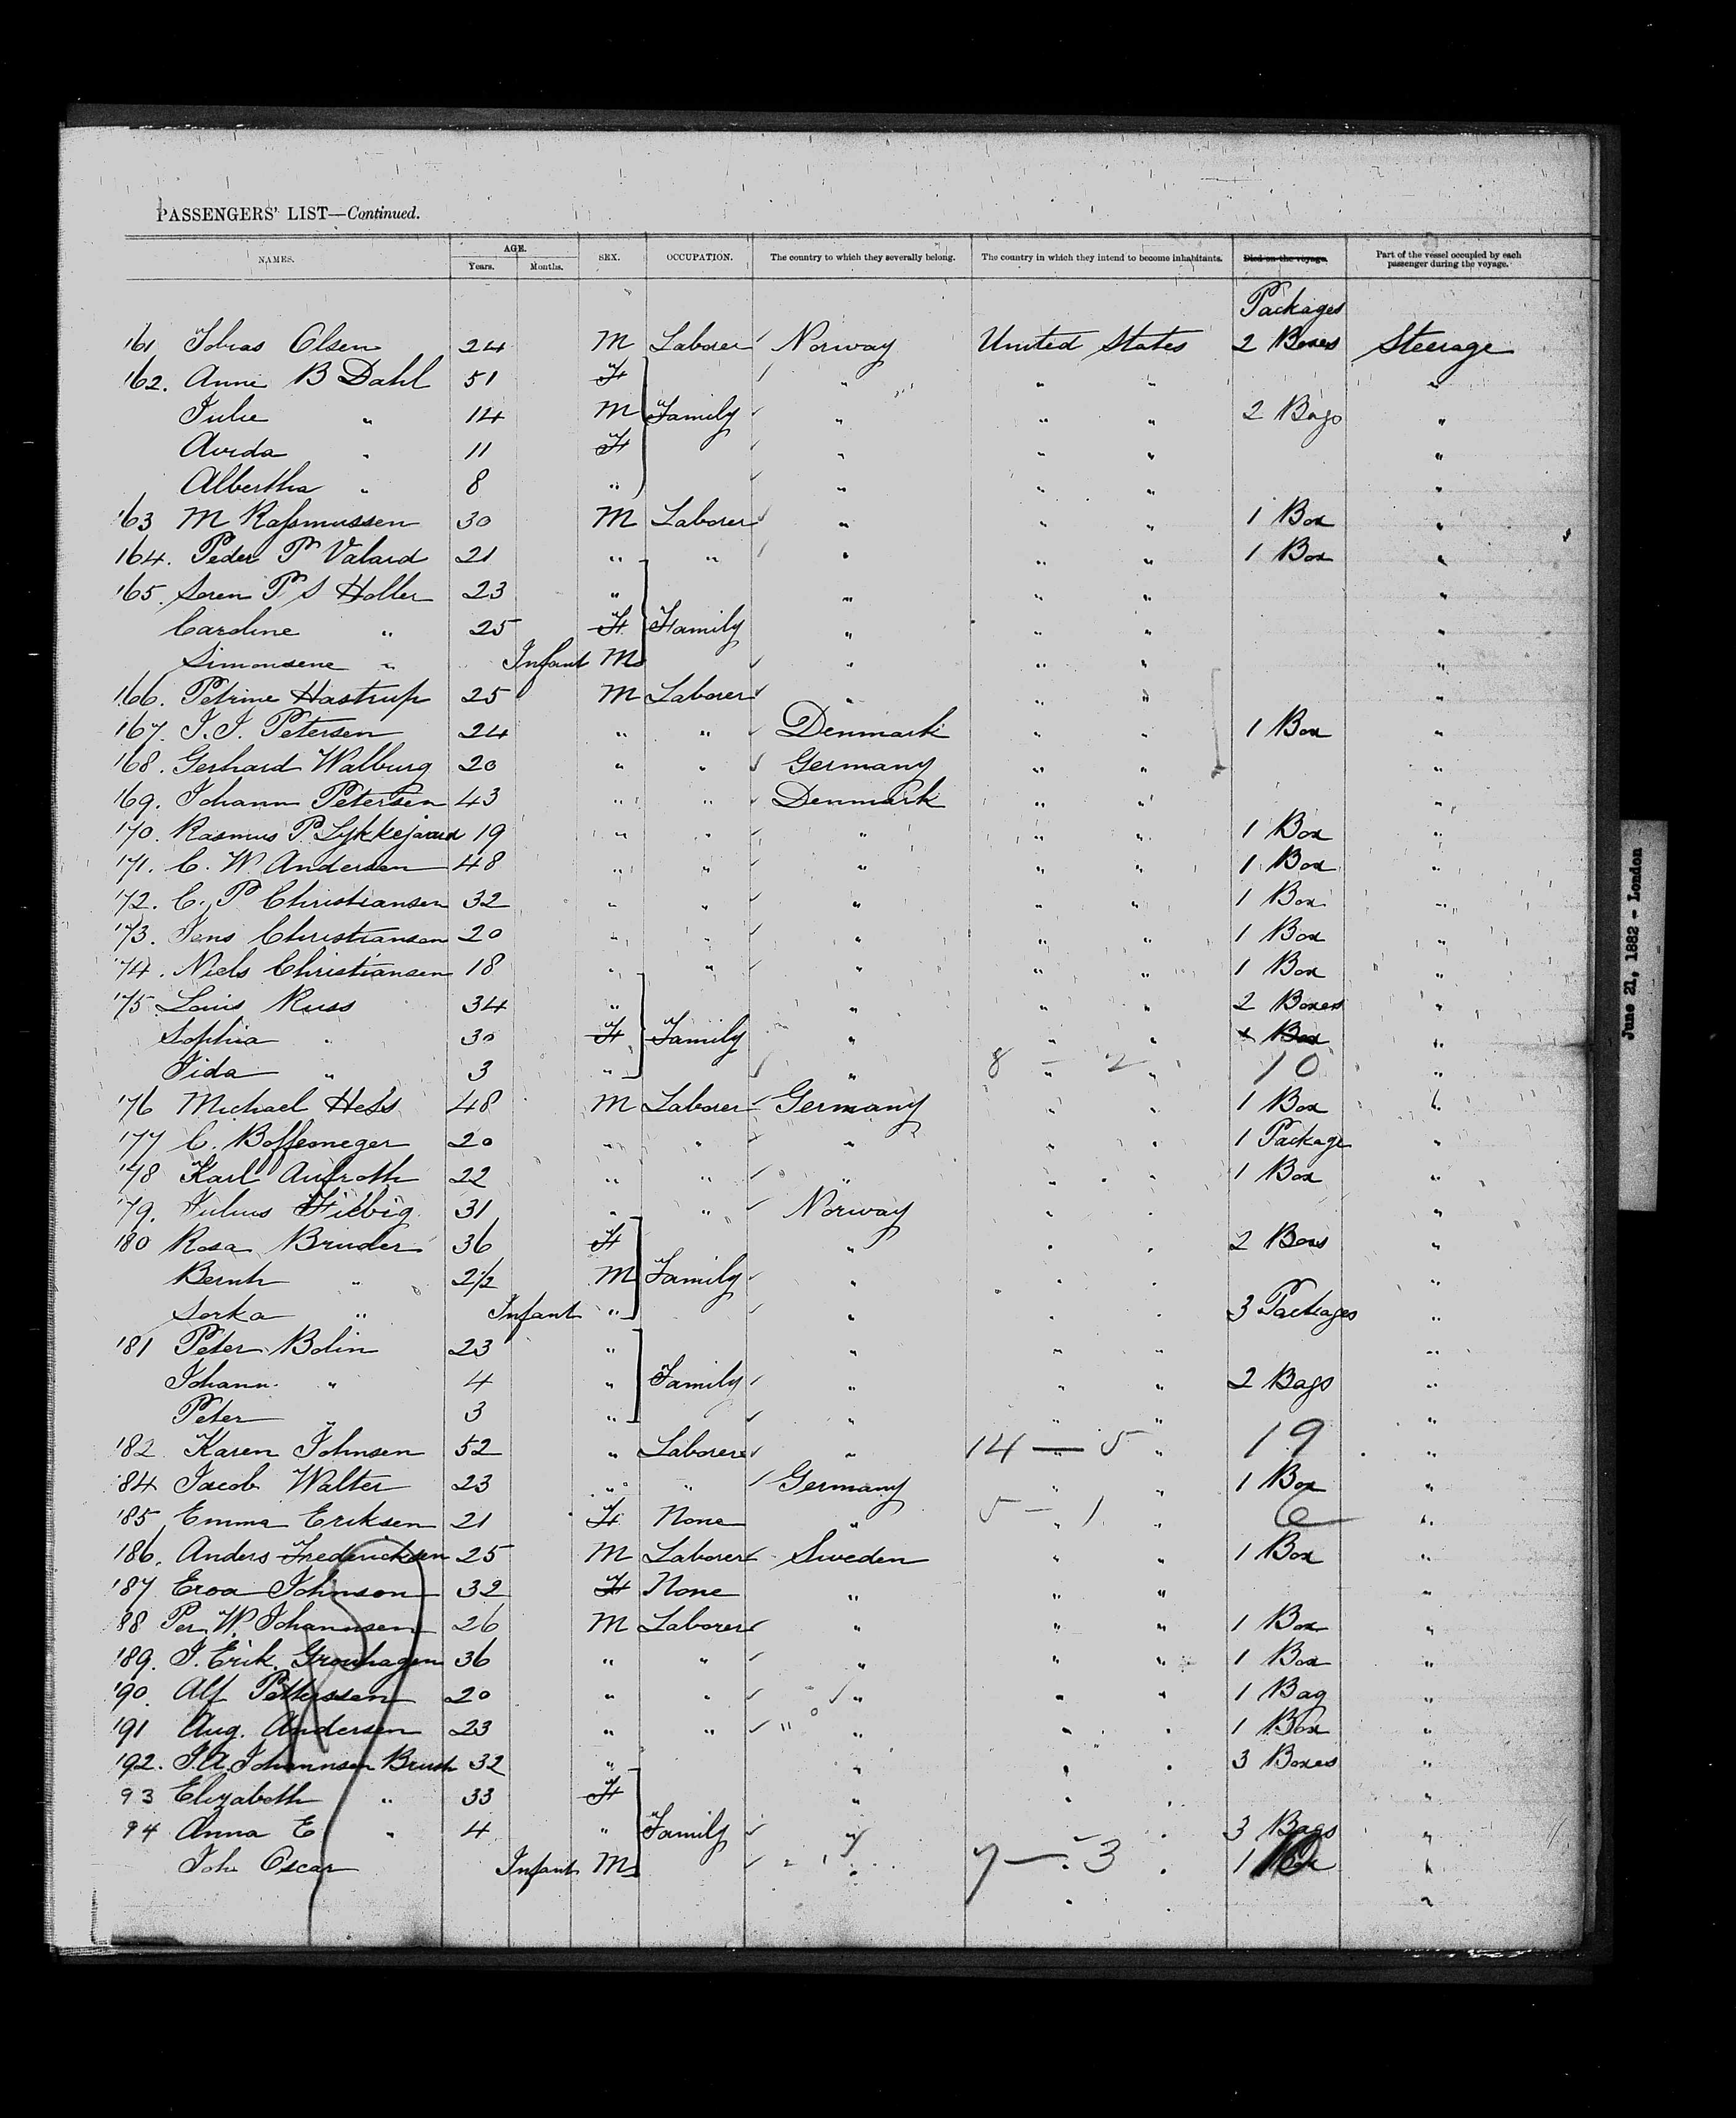 PASSENGERS' LIST—Continued.
NAMES. AGE. Years. Months. SEX. OCCUPATION. The country to which they severally belong. The country in which they intend to become inhabitants. Died on the voyage. Part of the vessel occupied by each passenger during the voyage.
Packages
161 Tobias Olsen 24 M Laborer Norway United States 2 Boxes Steerage
162. Anne B Dahl 51 F " " " "
Julie " 14 M Family " " " 2 Bags "
Avida " 11 F " " " "
Albertha " 8 " " " " "
163 M Rassmussen 30 M Laborer " " " 1 Box "
164. Peder P Valard 21 " " " " " 1 Box "
165. Soren P S Holler 23 " " " " "
Caroline " 25 F Family " " " "
Simonsene " Infant M " " " "
166. Petrine Hastrup 25 M Laborer " " " "
167. J. J. Petersen 24 " " Denmark " " 1 Box "
168. Gerhard Walburg 20 " " Germany " " "
169. Johann Petersen 43 " " Denmark " " "
170. Rasmus P. Lykkejaard 19 " " " " " 1 Box "
171. C. W. Andersen 48 " " " " " 1 Box "
172. C. P Christiansen 32 " " " " " 1 Box "
173. Jens Christiansen 20 " " " " " 1 Box "
174. Niels Christiansen 18 " " " " " 1 Box "
175 Louis Russ 34 " " " " 2 Boxes "
Sophia " 30 F Family " " " Box "
Iida " 3 " " 8 — 2 " " 10 "
176 Michael Hess 48 M Laborer Germany " " 1 Box "
177 C. Boffemeger 20 " " " " " 1 Package "
178 Karl Aufroth 22 " " " " " 1 Box "
179. Julius Filbig 31 " " Norway " " "
180 Rosa Bruder 36 F " " " 2 Boxs "
Bernh " 2½ M Family " " " "
Sorka " Infant " " " " 3 Packages "
181 Peter Bolin 23 " " " " "
Johann " 4 " Family " " " 2 Bags "
Peter " 3 " " " " "
182 Karen Johnsen 52 " Laborer " 14 — 5 " 19 "
184 Jacob Walter 23 " " Germany " " 1 Box "
185 Emma Eriksen 21 F None " 5 — 1 " " 6 "
186. Anders Fredericksen 25 M Laborer Sweden " " 1 Box "
187 Eroa Johnson 32 F None " " " "
88 Per W. Johannsen 26 M Laborer " " " 1 Box "
189. J. Erik Gronhagen 36 " " " " " 1 Box "
190. Alf Petterssen 20 " " " " " 1 Bag "
191 Aug. Andersen 23 " " " " " 1 Box "
192. J. A. Johannsen Brush 32 " " " " 3 Boxes "
93 Elizabeth " 33 F " " " "
94 Anna E " 4 " Family " " " 3 Bags "
Joh Oscar Infant M " 7 — 3 " 1 10 "
June 21, 1882 - London